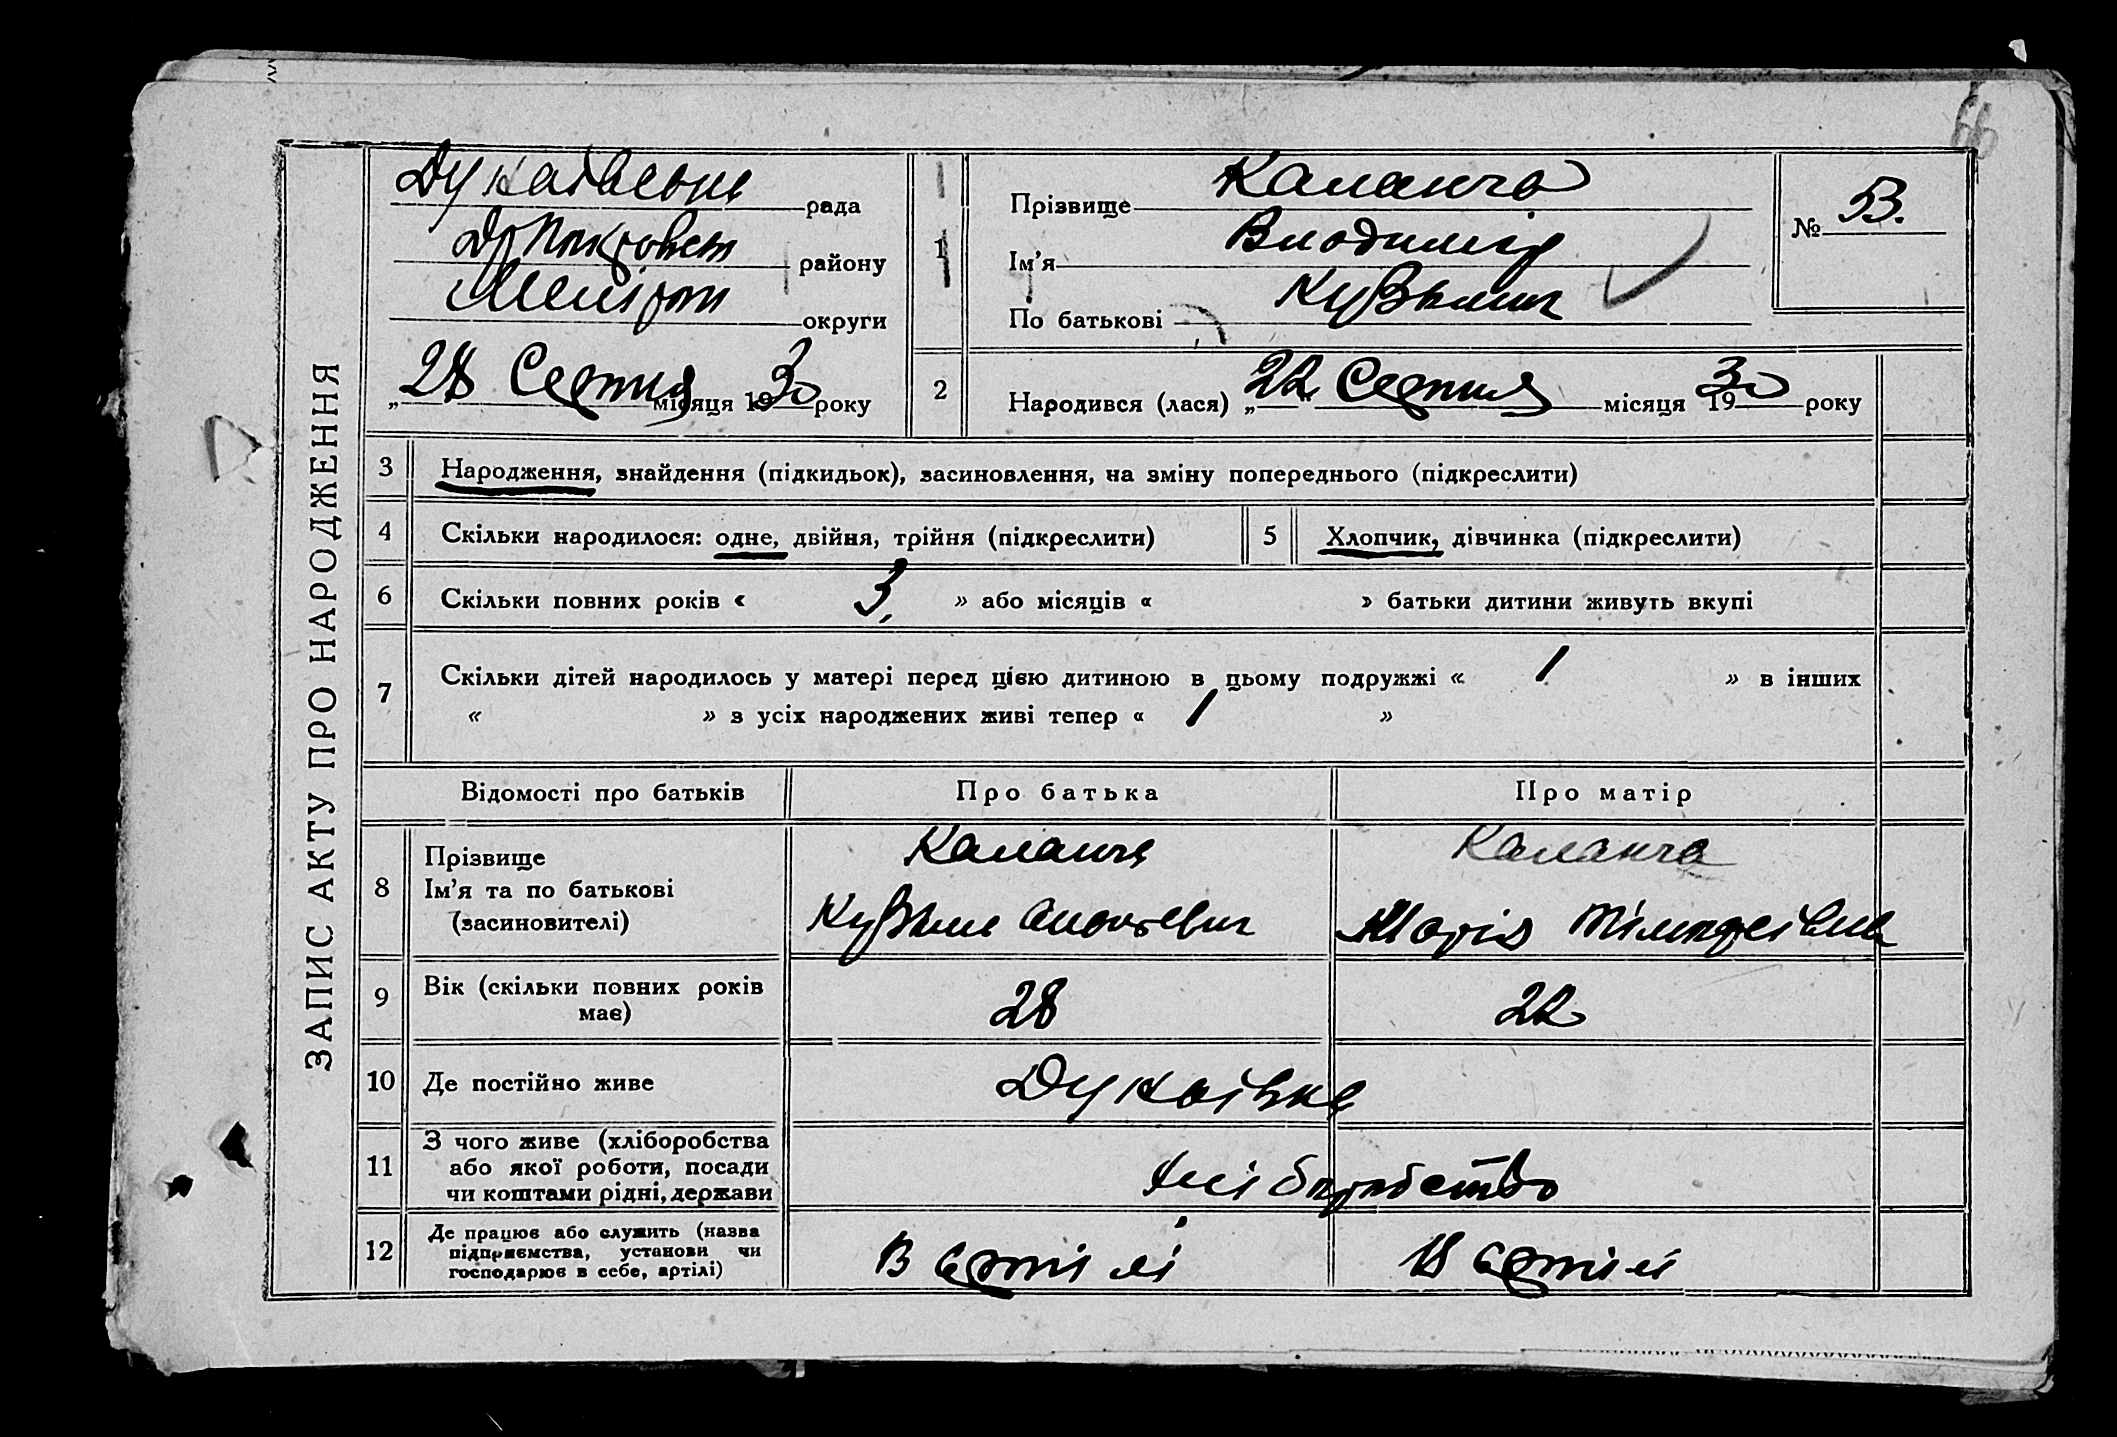 66
ЗАПИС АКТУ ПРО НАРОДЖЕННЯ
Дунаївська рада
району
Мелітоп округи
„28 Серпня місяця 1930 року
1
Прізвище Каланча
Ім’я Володимір
По батькові Кузьмич
№ 53.
2
Народився (лася) „22 Серпня місяця 1930 року
3 Народження, знайдення (підкидьок), засиновлення, на зміну попереднього (підкреслити)
4 Скільки народилося: одне, двійня, трійня (підкреслити) 5 Хлопчик, дівчинка (підкреслити)
6 Скільки повних років « 3, » або місяців « » батьки дитини живуть вкупі
7 Скільки дітей народилось у матері перед цією дитиною в цьому подружжі « 1 » в інших
« » з усіх народжених живі тепер « 1 »
Відомості про батьків Про батька Про матір
8 Прізвище
Ім’я та по батькові
(засиновителі)
Каланча
Кузьма
Каланча
Марія Тімофеівна
9 Вік (скільки повних років
має)
28 22
10 Де постійно живе Дунаівка
11 З чого живе (хліборобства
або якої роботи, посади
чи коштами рідні, держави
хліборобство
12 Де працює або служить (назва
підприємства, установи чи
господарює в себе, артілі)
В артілі В артілі